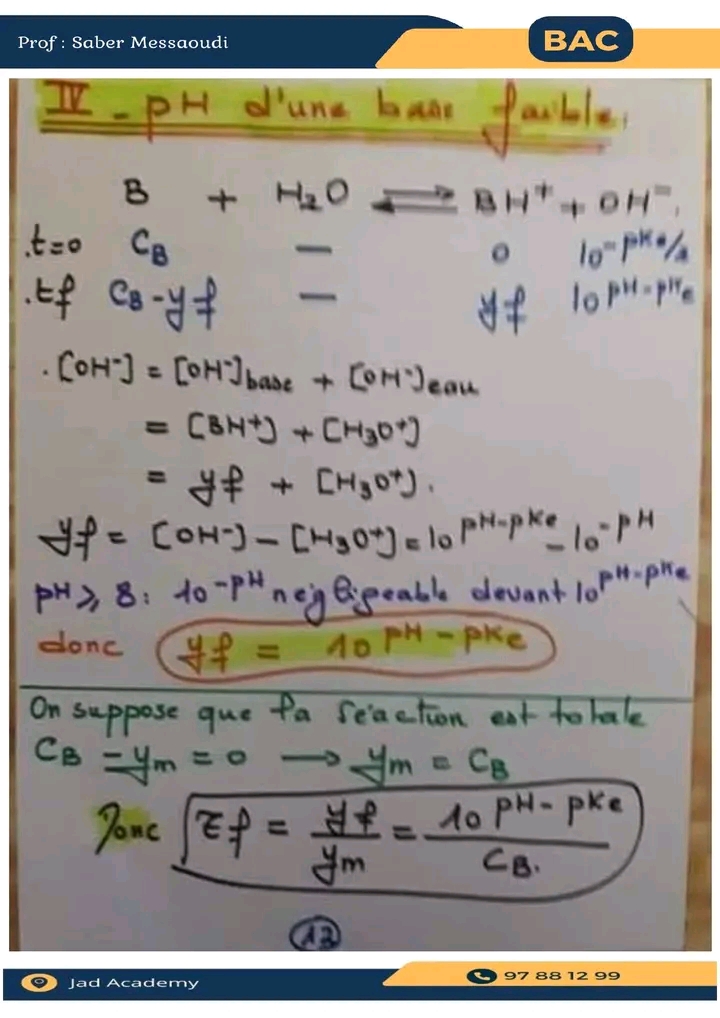 Prof : Saber Messaoudi
BAC
IV - pH d'une base faible.
B + H₂O ⇌ BH⁺ + OH⁻.
.t=0 C_B — 0 10^-pKe/2
.tf C_B-yf — yf 10^pH-pKe
. [OH⁻] = [OH⁻]base + [OH⁻]eau
= [BH⁺] + [H₃O⁺]
= yf + [H₃O⁺].
yf = [OH⁻] - [H₃O⁺] = 10^pH-pKe - 10^-pH
pH ⩾ 8: 10^-pH négligeable devant 10^pH-pKe
donc yf = 10^pH-pKe
On suppose que la réaction est totale
C_B - ym = 0 → ym = C_B
Donc τf = yf/ym = 10^pH-pKe/C_B.
Jad Academy
97 88 12 99